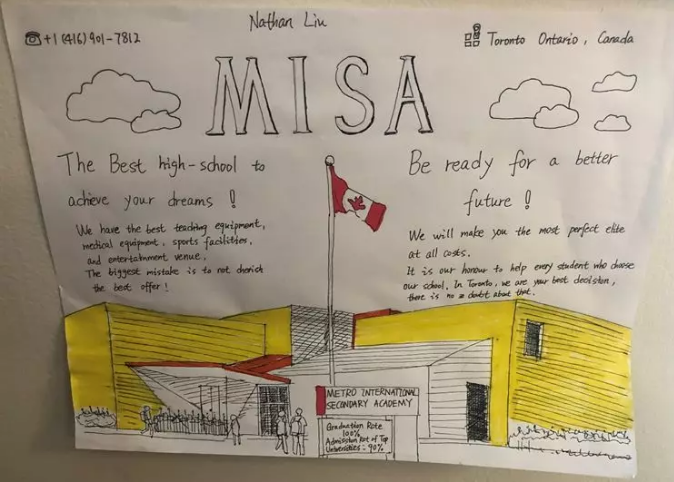 Nathan Liu
+1 (416) 901-7812
Toronto Ontario, Canada
MISA
The Best high-school to
achieve your dreams !
We have the best teaching equipment,
medical equipment, sports facilities,
and entertainment venue.
The biggest mistake is to not cherish
the best offer !
Be ready for a better
future !
We will make you the most perfect elite
at all costs.
It is our honour to help every student who choose
our school. In Toronto, we are your best decision,
there is no a doubt about that.
METRO INTERNATIONAL
SECONDARY ACADEMY
Graduation Rate
100%
Admission Rat of Top
Universities: 90%